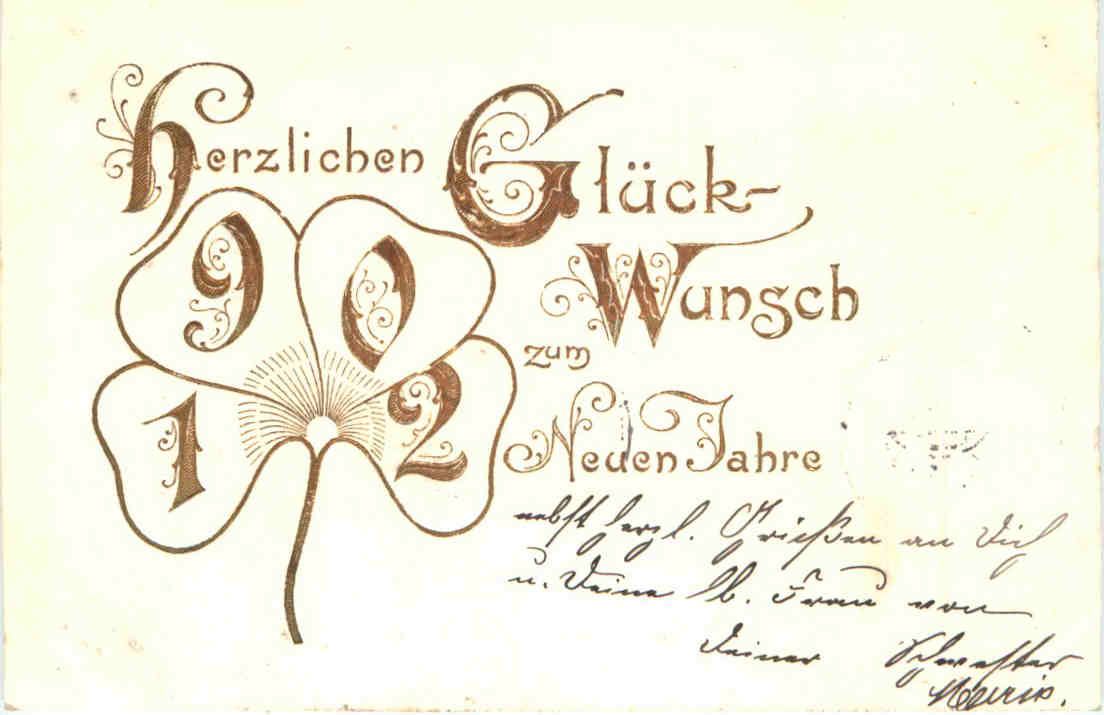 Herzlichen Glück-
Wunsch
zum
Neuen Jahre
1902
nebst herzl. Grüßen an Dich
u. Deine lb. Frau von
Deiner Schwester
Marie.